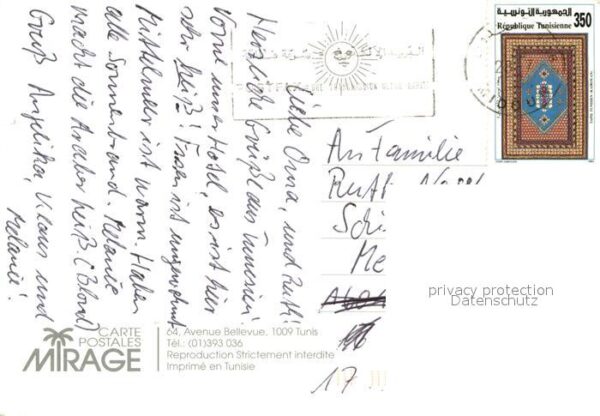 الجمهورية التونسية
350
République Tunisienne
Liebe Oma, und Ruth!
Herzliche Grüße aus Tunesien!
Vorne unser Hotel, es ist hier
sehr heiß! Essen ist ungewohnt
Mittelmeer ist warm. Haben
alle Sonnenbrand. Melanie
macht die Araber heiß. (Blond)
Gruß Angelika, Klaus und
Melanie!
An Familie
Ruth
Sch
Me
17
privacy protection
Datenschutz
CARTE
POSTALES
MIRAGE
64, Avenue Bellevue, 1009 Tunis
Tél.: (01)393 036
Reproduction Strictement interdite
Imprimé en Tunisie